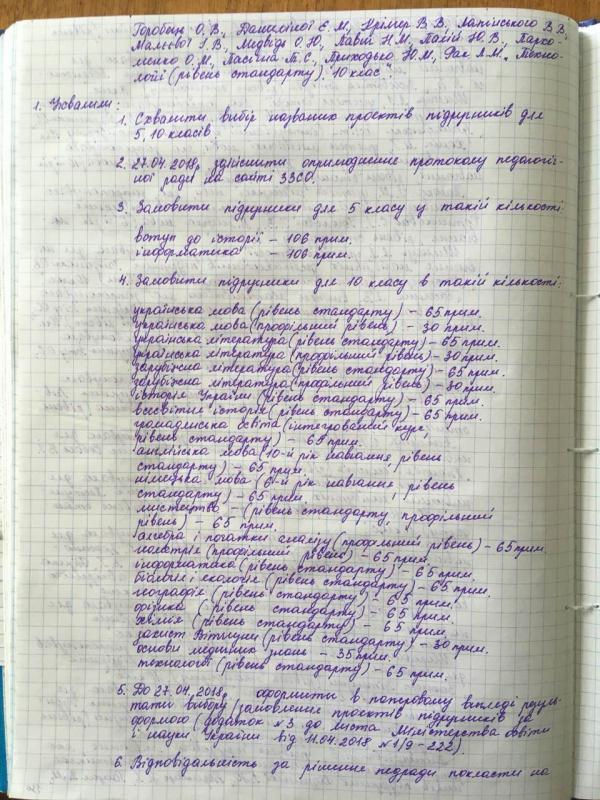 Горобець О.В., Данилкіної Є.М., Крімер В.В. Лапінського В.В.
Мальєвої І.В., Медвідь О.Ю., Павич Н.М., Палій Ю.В., Пархо-
менко О.М., Пасічна Т.С., Приходько Ю.М., Фак Л.М., „Техно-
логії (рівень стандарту). 10 клас".
1. Ухвалили:
1. Схвалити вибір названих проєктів підручників для
5, 10 класів.
2. 27.04.2018р. здійснити оприлюднення протоколу педагогіч-
ної ради на сайті ЗЗСО.
3. Замовити підручники для 5 класу у такій кількості:
вступ до історії – 106 прим.
інформатика – 106 прим.
4. Замовити підручники для 10 класу в такій кількості:
українська мова (рівень стандарту) – 65 прим.
українська мова (профільний рівень) – 30 прим.
українська література (рівень стандарту) – 65 прим.
українська література (профільний рівень) – 30 прим.
зарубіжна література (рівень стандарту) – 65 прим.
зарубіжна література (профільний рівень) – 30 прим.
історія України (рівень стандарту) – 65 прим.
всесвітня історія (рівень стандарту) – 65 прим.
громадянська освіта (інтегрований курс,
рівень стандарту) – 65 прим.
англійська мова (10-й рік навчання, рівень
стандарту) – 65 прим.
німецька мова (6-й рік навчання, рівень
стандарту) – 65 прим.
мистецтво – (рівень стандарту, профільний
рівень) – 65 прим.
алгебра і початки аналізу (профільний рівень) – 65 прим.
геометрія (профільний рівень) – 65 прим.
інформатика (рівень стандарту) – 65 прим.
біологія і екологія (рівень стандарту) – 65 прим.
географія (рівень стандарту) – 65 прим.
фізика (рівень стандарту) – 65 прим.
хімія (рівень стандарту) – 65 прим.
захист Вітчизни (рівень стандарту) – 30 прим.
основи медичних знань – 35 прим.
технології (рівень стандарту) – 65 прим.
5. До 27.04.2018р. оформити в паперовому вигляді резуль-
тати вибору (замовлення проєктів підручників за
формою (додаток №3 до листа Міністерства освіти
і науки України від 11.04.2018 №1/9-222).
6. Відповідальність за рішення педради покласти на